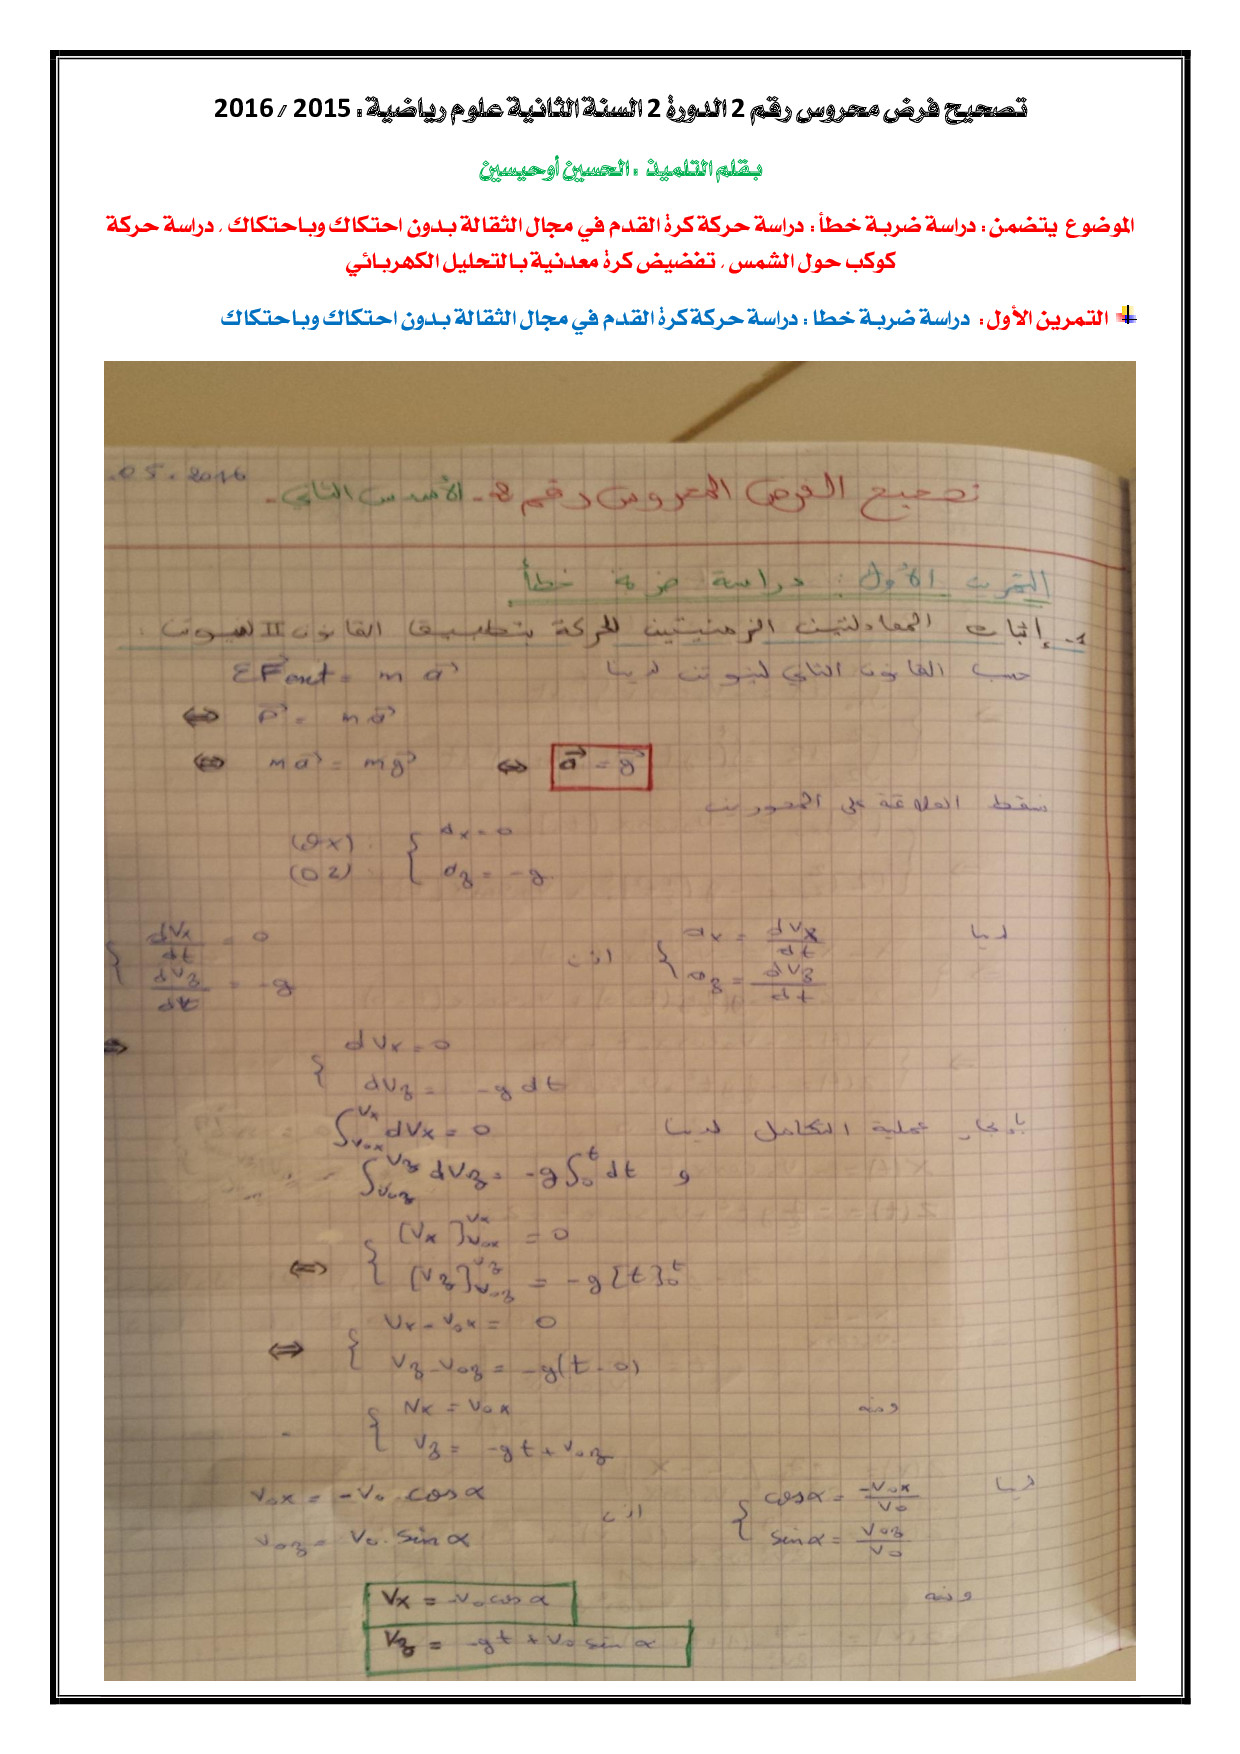 تصحيح فرض محروس رقم 2 الدورة 2 السنة الثانية علوم رياضية : 2015 / 2016
بقلم التلميذ : الحسين أوحيسين
الموضوع يتضمن : دراسة ضربة خطأ : دراسة حركة كرة القدم في مجال الثقالة بدون احتكاك وباحتكاك . دراسة حركة
كوكب حول الشمس . تفضيض كرة معدنية بالتحليل الكهربائي
التمرين الأول : دراسة ضربة خطا : دراسة حركة كرة القدم في مجال الثقالة بدون احتكاك وباحتكاك
.05.2016
تصحيح الفرض المحروس رقم 2 - الأسدس الثاني -
التمرين الأول : دراسة ضربة خطأ
1- إثبات المعادلتين الزمنيتين للحركة بتطبيق القانون II لنيوتن :
حسب القانون الثاني لنيوتن لدينا Σ F⃗ext = m a⃗
⇔ P⃗ = m a⃗
⇔ m a⃗ = m g⃗ ⇔ a⃗ = g⃗
نسقط العلاقة على المحورين
(Ox) { ax = 0
(Oz) { az = -g
لدينا { ax = dVx/dt اذن { dVx/dt = 0
az = dVz/dt dVz/dt = -g
⇒ { dVx = 0
dVz = -g dt
بإنجاز عملية التكامل لدينا ∫_{V0x}^{Vx} dVx = 0
و ∫_{V0z}^{Vz} dVz = -g ∫_0^t dt
⇔ { [Vx]_{V0x}^{Vx} = 0
[Vz]_{V0z}^{Vz} = -g [t]_0^t
⇔ { Vx - V0x = 0
Vz - V0z = -g(t - 0)
ومنه { Vx = V0x
Vz = -gt + V0z
لدينا { cosα = -V0x/V0 اذن V0x = -V0 . cosα
sinα = V0z/V0 V0z = V0 . sinα
ومنه Vx = -V0 cosα
Vz = -gt + V0 sinα